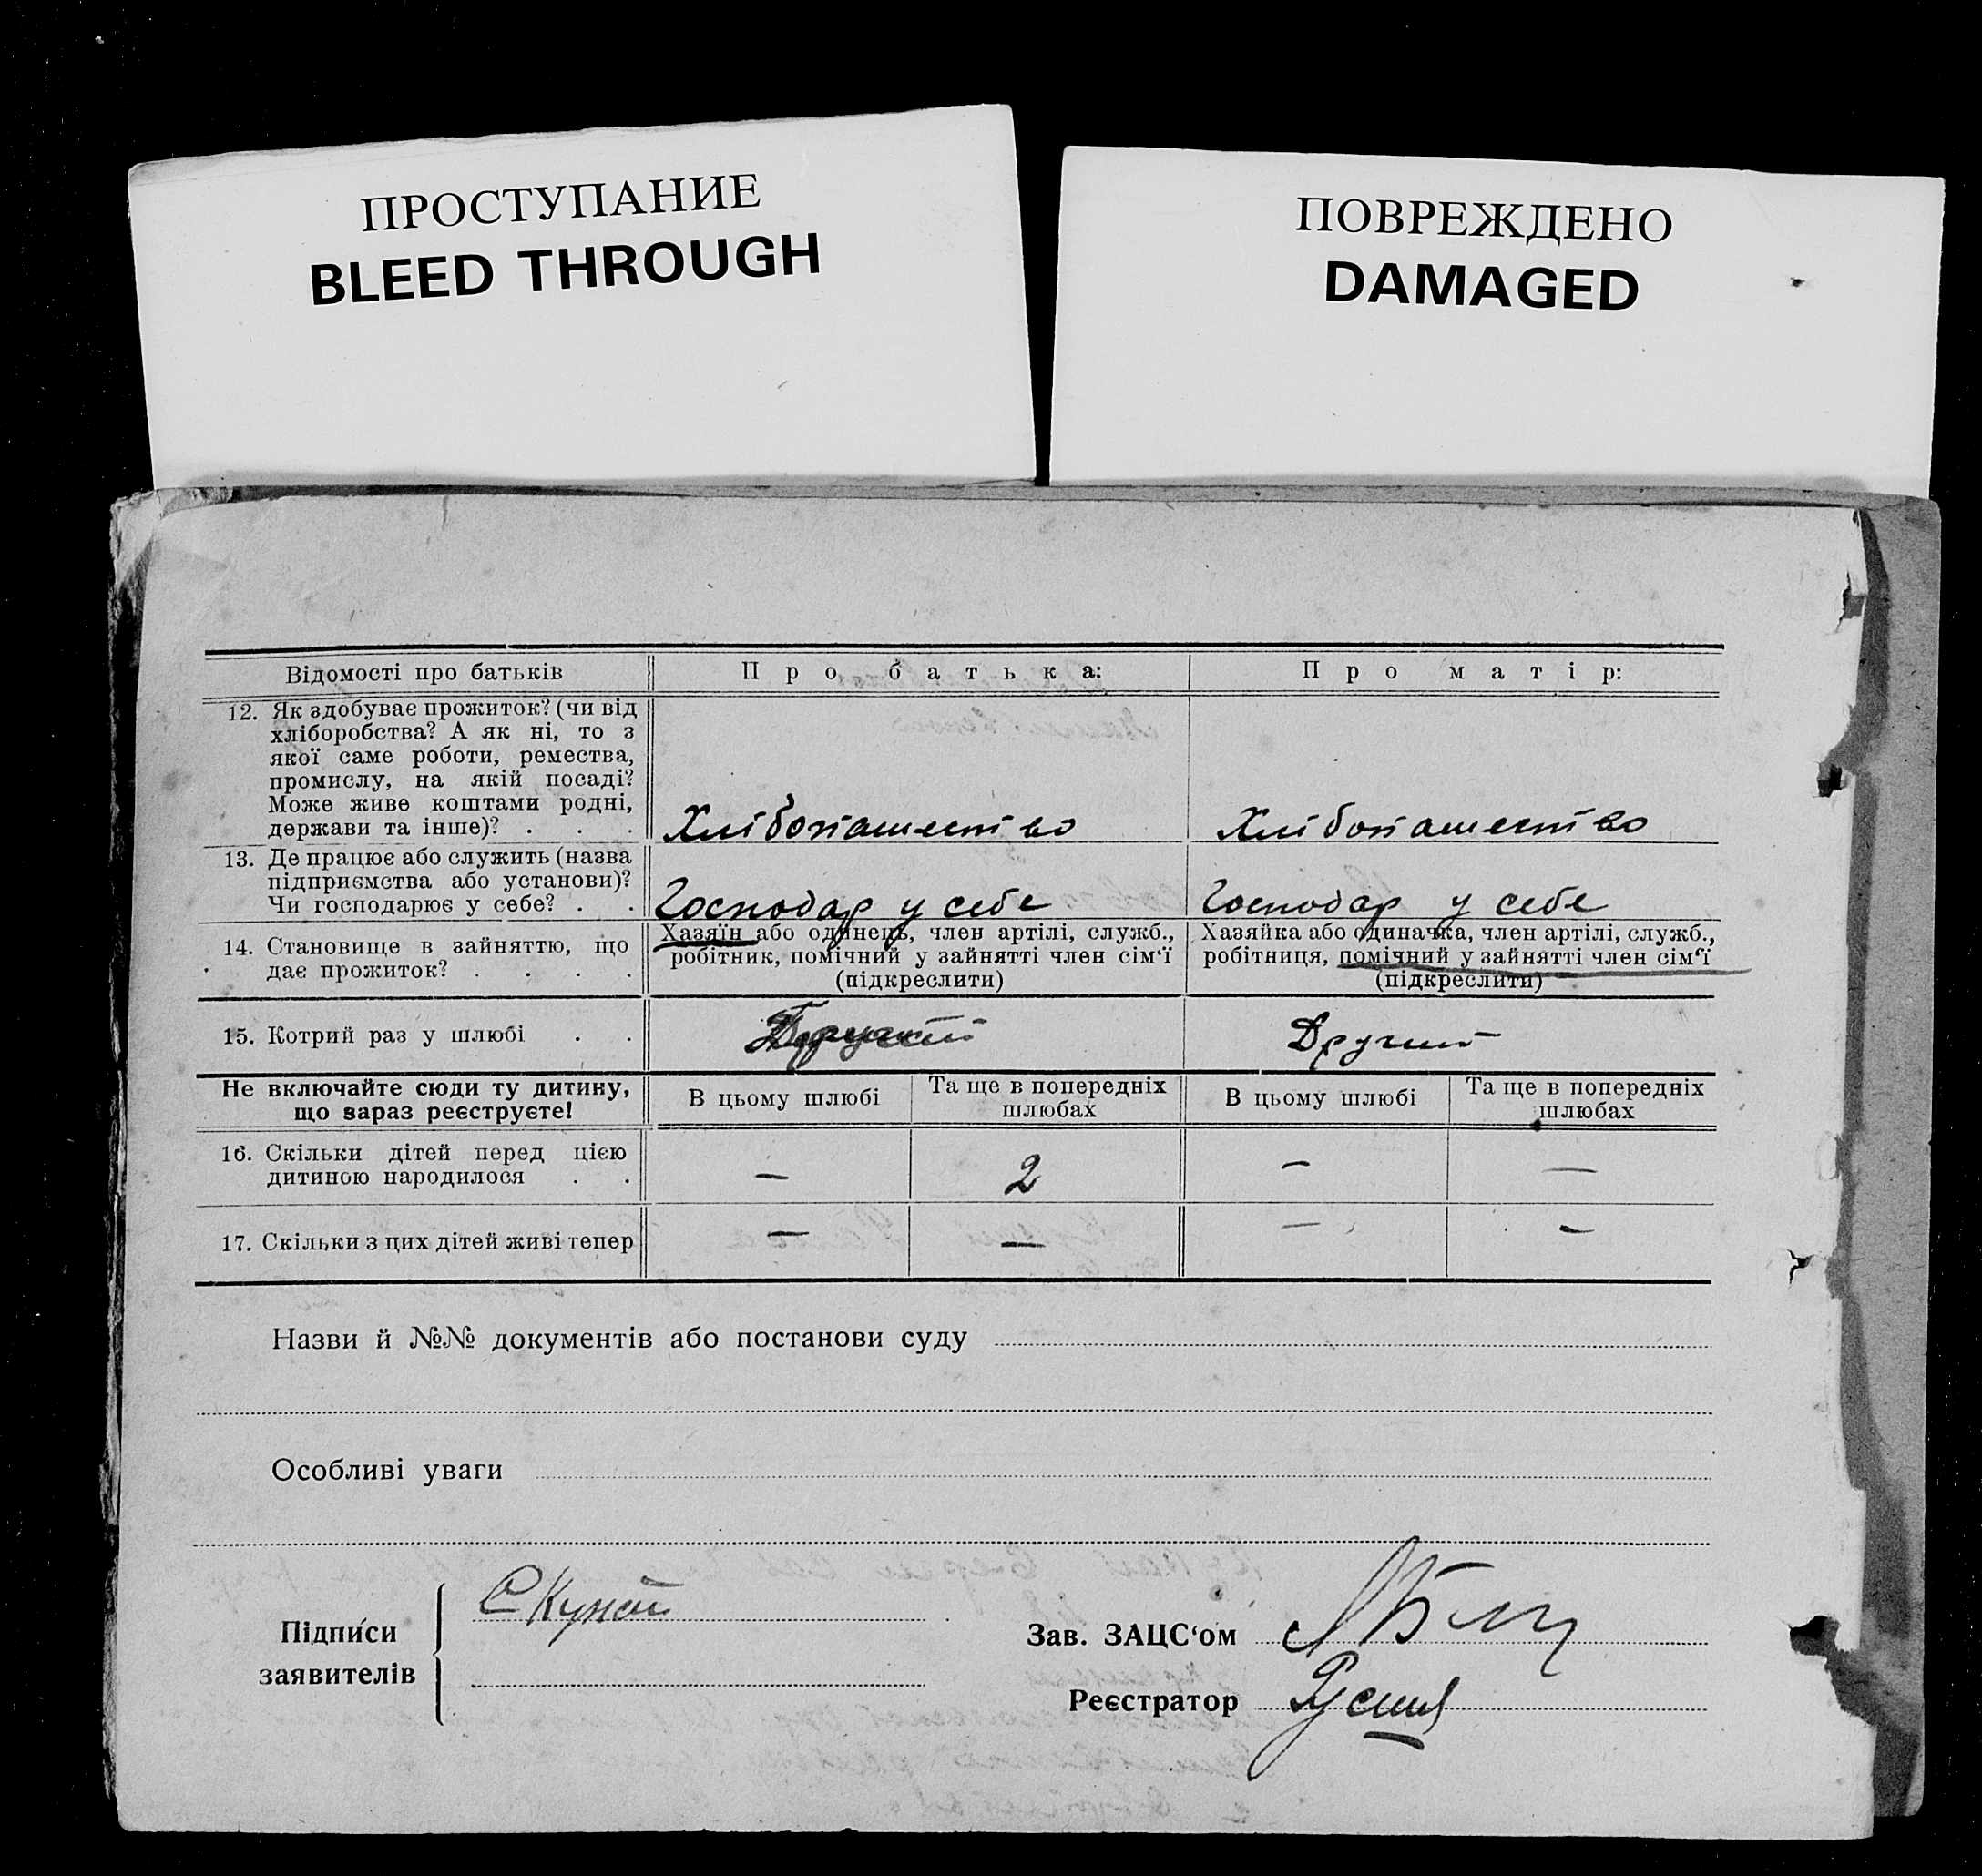 ПРОСТУПАНИЕ
BLEED THROUGH
ПОВРЕЖДЕНО
DAMAGED
Відомості про батьків
Про батька:
Про матір:
12. Як здобуває прожиток? (чи від
хліборобства? А як ні, то з
якої саме роботи, ремества,
промислу, на якій посаді?
Може живе коштами родні,
держави та інше)? . . .
Хлібопашество
Хлібопашество
13. Де працює або служить (назва
підприємства або установи)?
Чи господарює у себе? . .
Господар у себе
Господар у себе
14. Становище в зайняттю, що
дає прожиток? . . . .
Хазяїн або одинець, член артілі, служб.,
робітник, помічний у зайнятті член сім‘ї
(підкреслити)
Хазяйка або одиначка, член артілі, служб.,
робітниця, помічний у зайнятті член сім‘ї
(підкреслити)
15. Котрий раз у шлюбі . .
Другий
Не включайте сюди ту дитину,
що зараз реєструєте!
В цьому шлюбі
Та ще в попередніх
шлюбах
В цьому шлюбі
Та ще в попередніх
шлюбах
16. Скільки дітей перед цією
дитиною народилося . .
—
2
—
—
17. Скільки з цих дітей живі тепер
—
—
—
—
Назви й №№ документів або постанови суду
Особливі уваги
Підписи
заявителів
Зав. ЗАЦС‘ом
Реєстратор